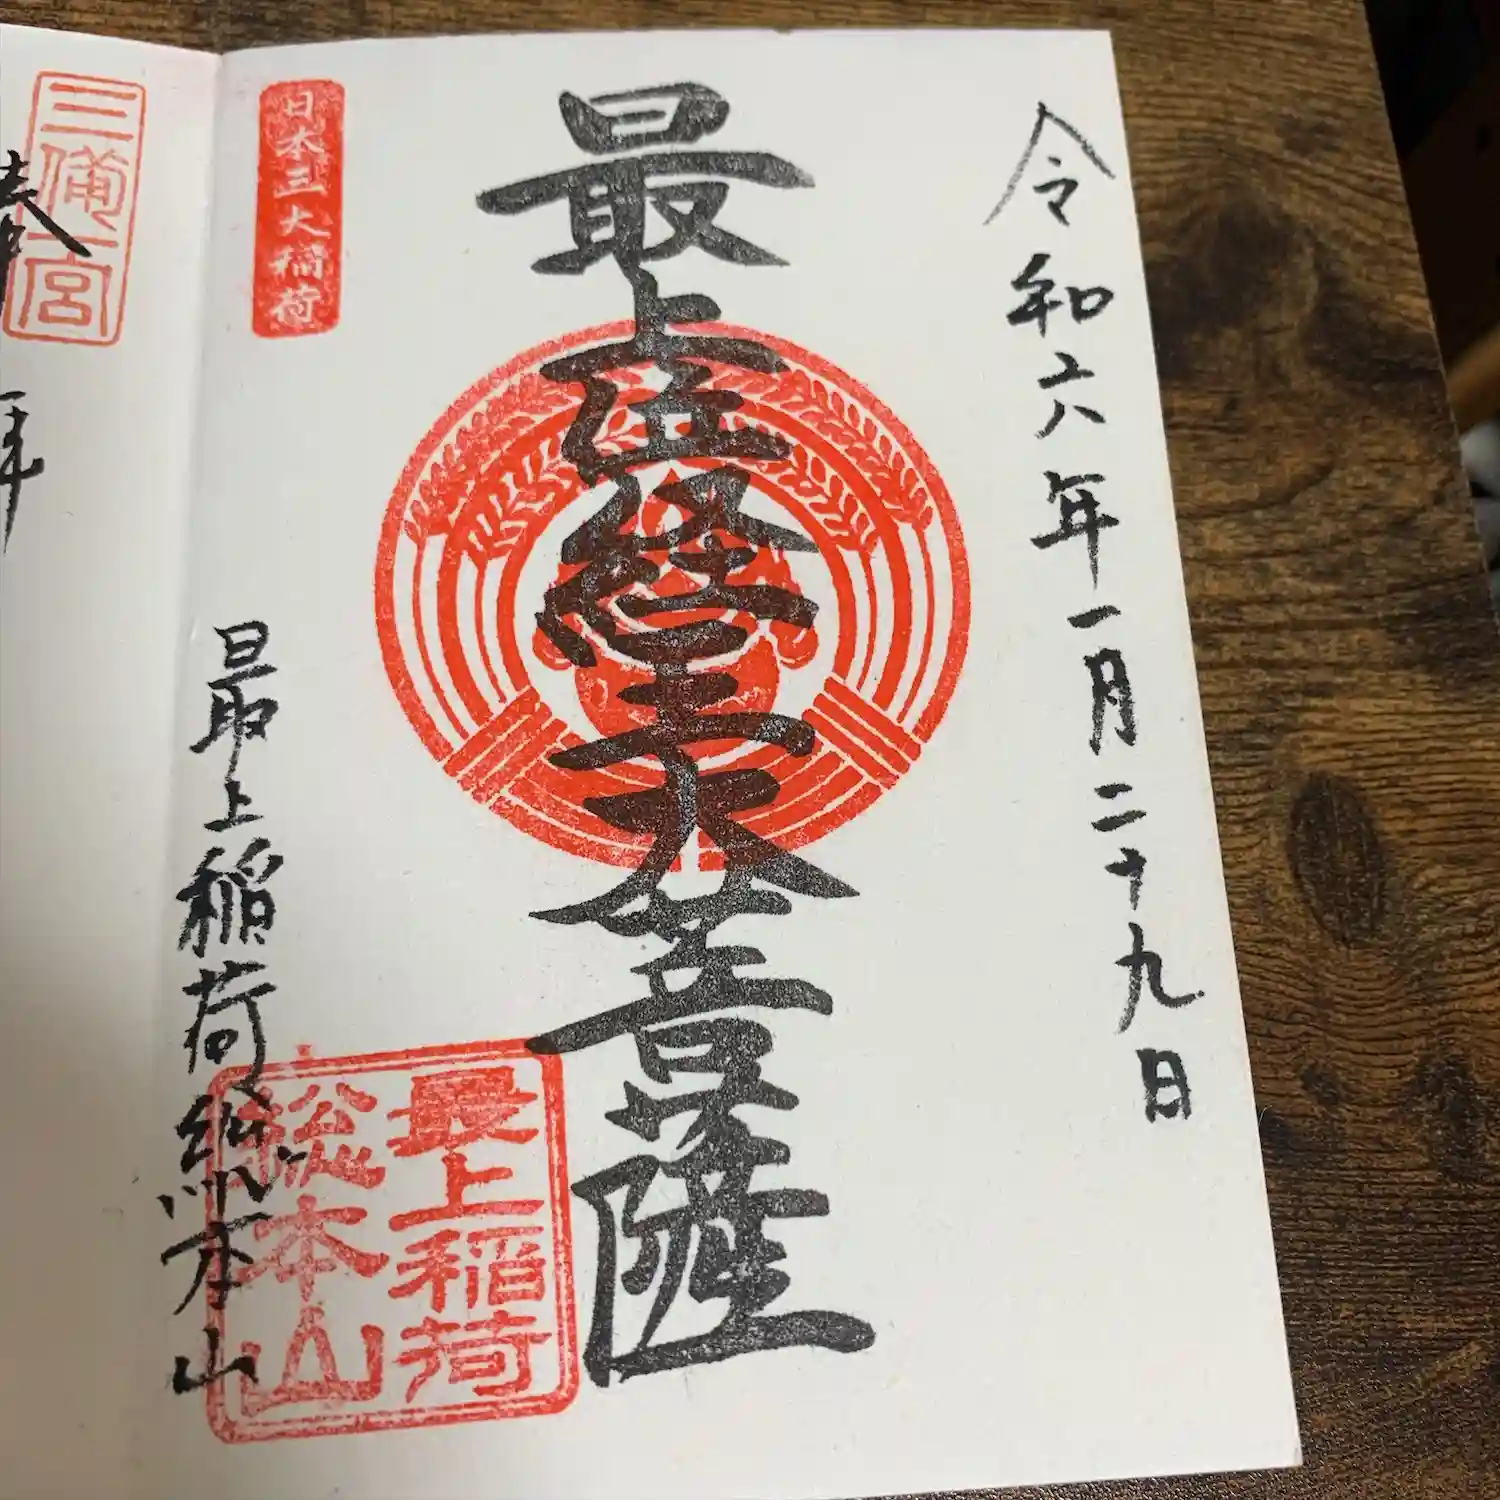 令和六年一月二十九日
最上位経王大菩薩
日本三大稲荷
最上稲荷総本山
最上稲荷
総本山
三備一宮
奉拝